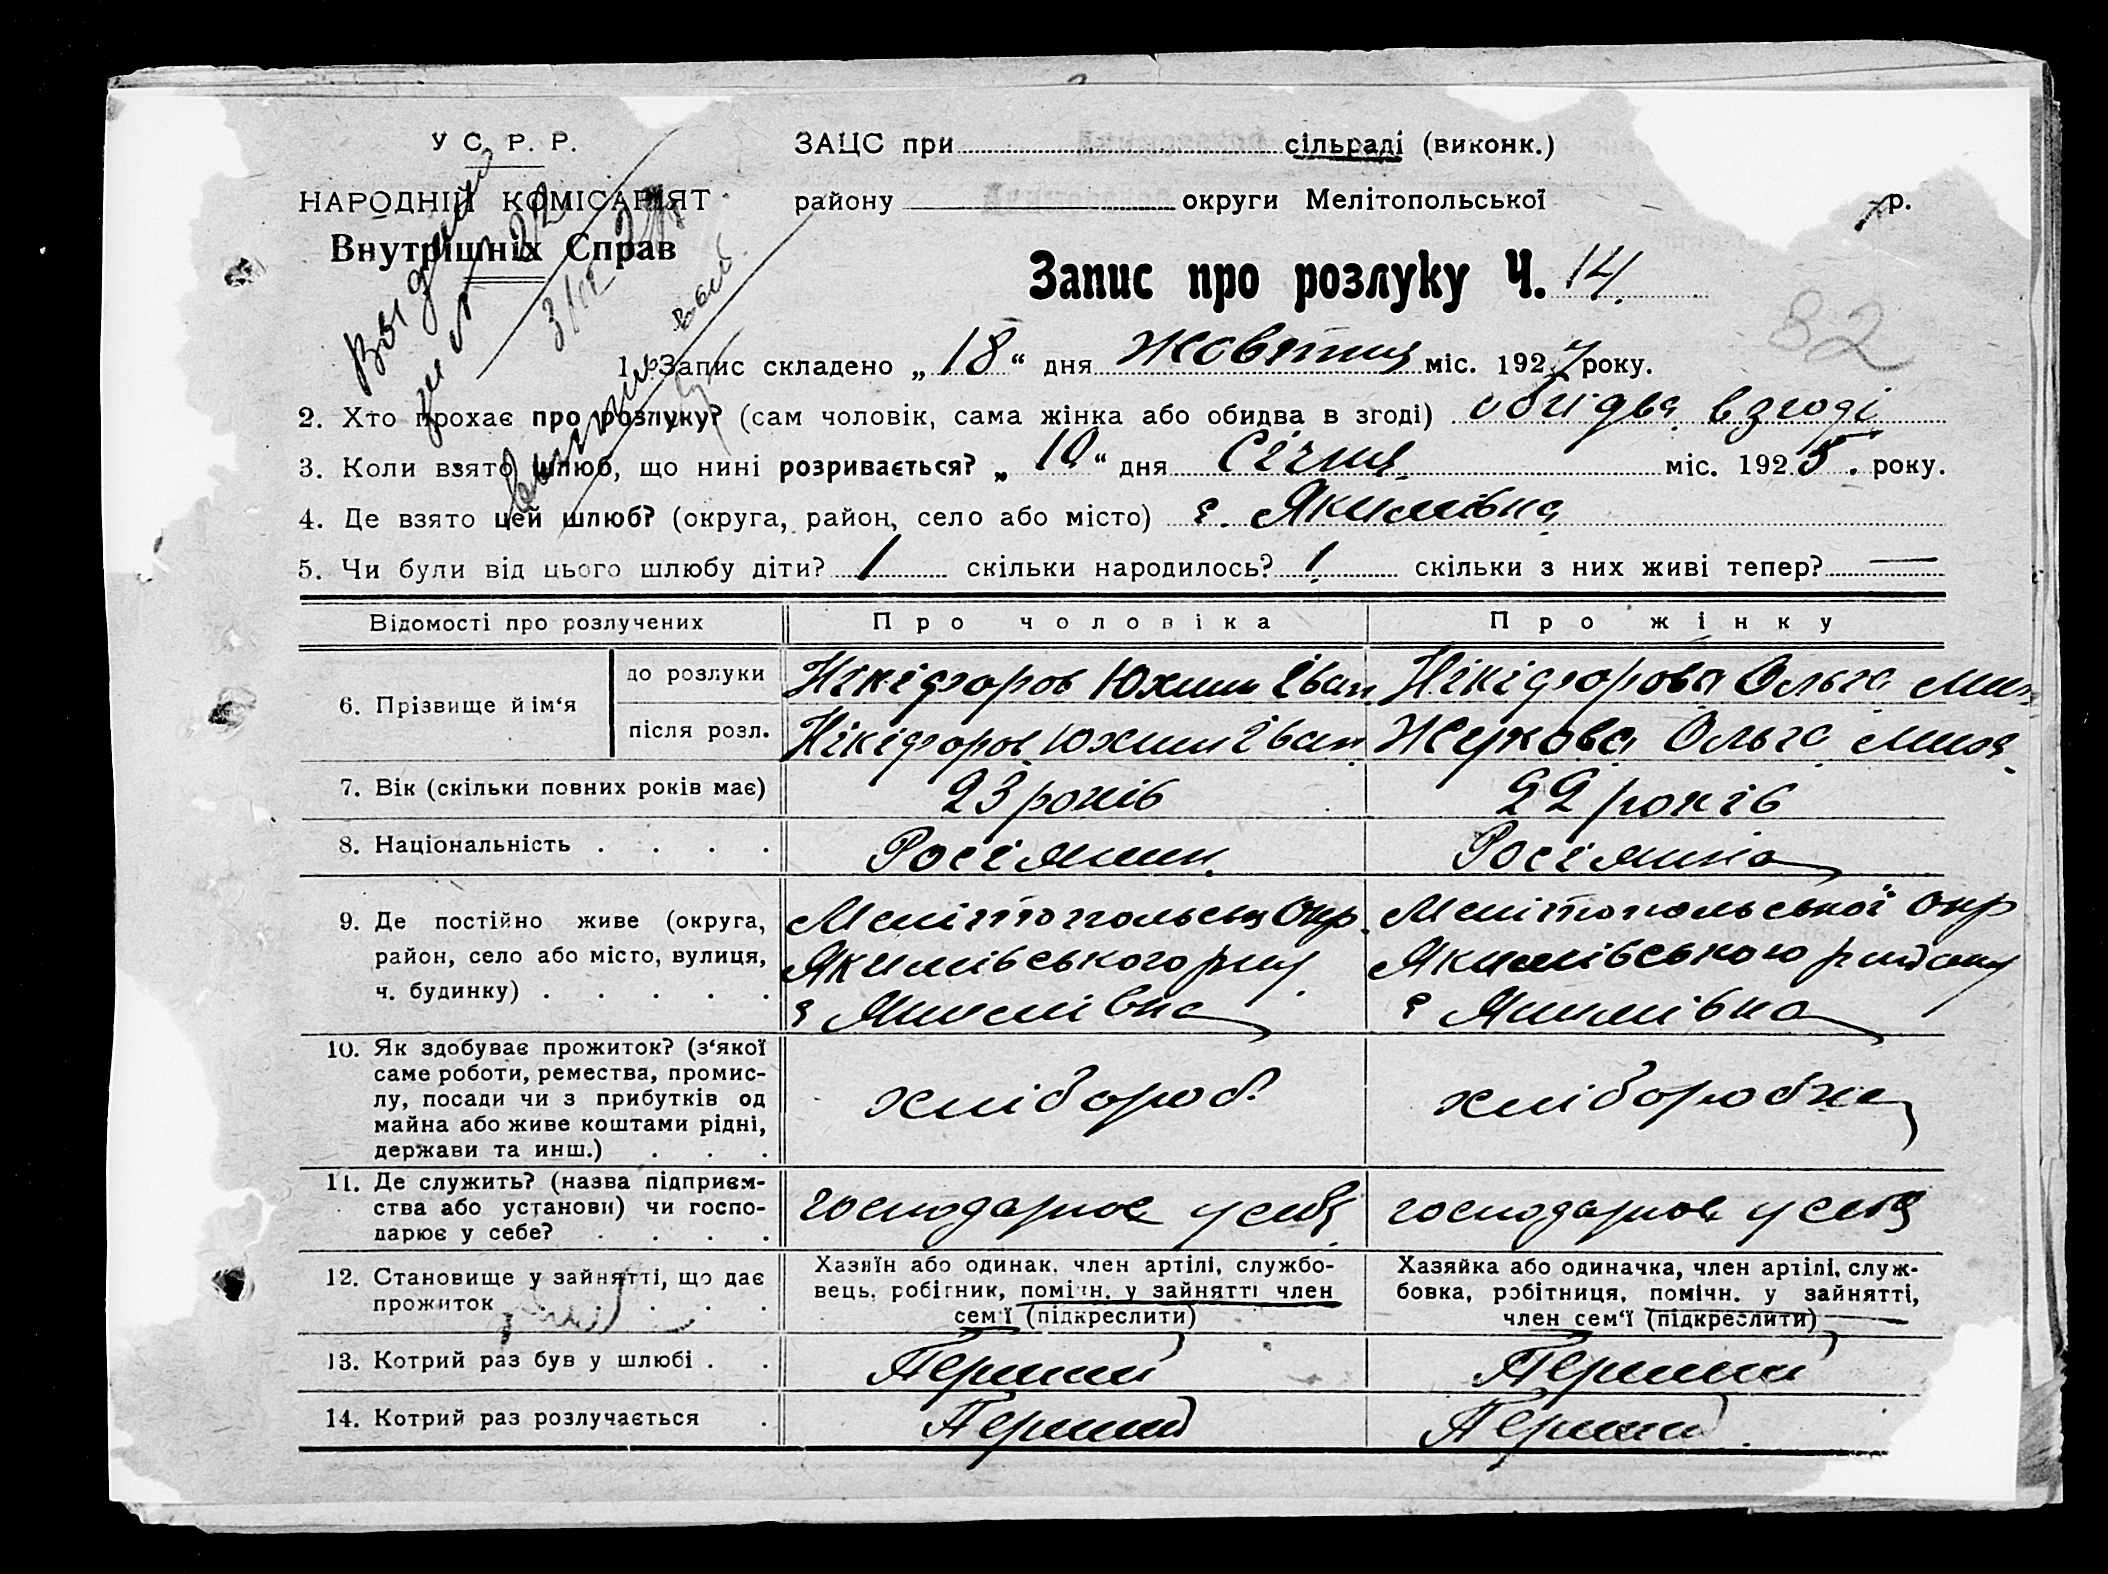 У С. Р. Р.
НАРОДНІЙ КОМІСАРІЯТ
Внутрішніх Справ
ЗАЦС при сільраді (виконк.)
району округи Мелітопольської р.
Запис про розлуку Ч. 14
82
1. Запис складено „18“ дня Жовтня міс. 1927 року.
2. Хто прохає про розлуку? (сам чоловік, сама жінка або обидва в згоді) обидва в згоді
3. Коли взято шлюб, що нині розривається? „10“ дня Січня міс. 1925. року.
4. Де взято цей шлюб? (округа, район, село або місто) с. Якимівка
5. Чи були від цього шлюбу діти? 1 скільки народилось? 1 скільки з них живі тепер? —
Відомості про розлучених Про чоловіка Про жінку
6. Прізвище й ім‘я
до розлуки Нікіфоров Юхим Іван Нікіфорова Ольга
після розл. Нікіфоров Юхим Іван Жукова Ольга
7. Вік (скільки повних років має) 23 років 22 років
8. Національність . . . . Росіянин Росіянка
9. Де постійно живе (округа, район, село або місто, вулиця, ч. будинку) . . . . .
Мелітопольськ Окр.
Якимівського рну
с Якимівка
Мелітопольської Окр
Якимівського району
с Якимівка
10. Як здобуває прожиток? (з‘якої
саме роботи, ремества, промис-
лу, посади чи з прибутків од
майна або живе коштами рідні,
держави та инш.) . . .
хлібороб хліборобка
11. Де служить? (назва підприєм-
ства або установи) чи госпо-
дарює у себе? . . . .
господарює у себе господарює у себе
12. Становище у зайнятті, що дає
прожиток . . . . .
Хазяїн або одинак, член артілі, службо-
вець, робітник, помічн. у зайнятті член
сем‘ї (підкреслити)
Хазяйка або одиначка, член артілі, служ-
бовка, робітниця, помічн. у зайнятті,
член сем‘ї (підкреслити)
13. Котрий раз був у шлюбі . . Перший Перший
14. Котрий раз розлучається . Перший Перший